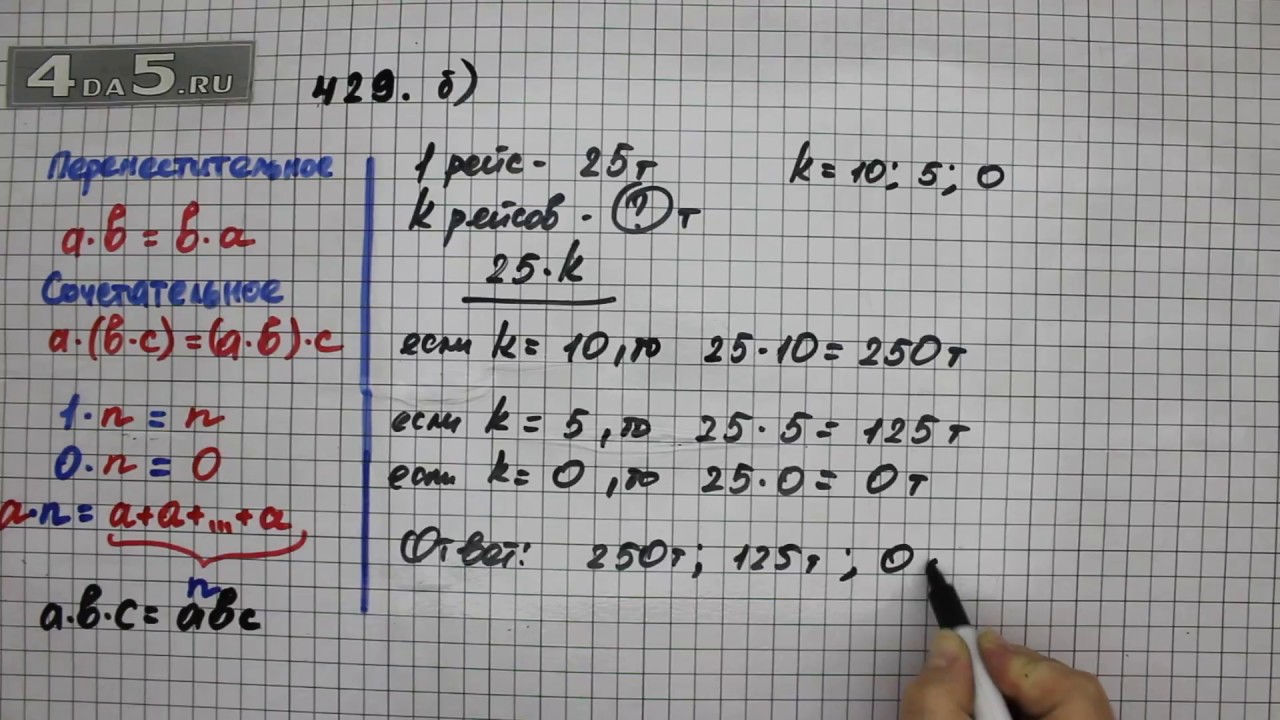 4DA5.RU
429. б)
Переместительное
a·b = b·a
Сочетательное
a·(b·c)=(a·b)·c
1·n = n
0·n = 0
a·n = a+a+...+a
n
a·b·c = abc
1 рейс - 25т
k = 10; 5; 0
k рейсов - ? т
25·k
если k = 10, то 25·10 = 250т
если k = 5, то 25·5 = 125т
если k = 0, то 25·0 = 0т
Ответ: 250т; 125т; 0